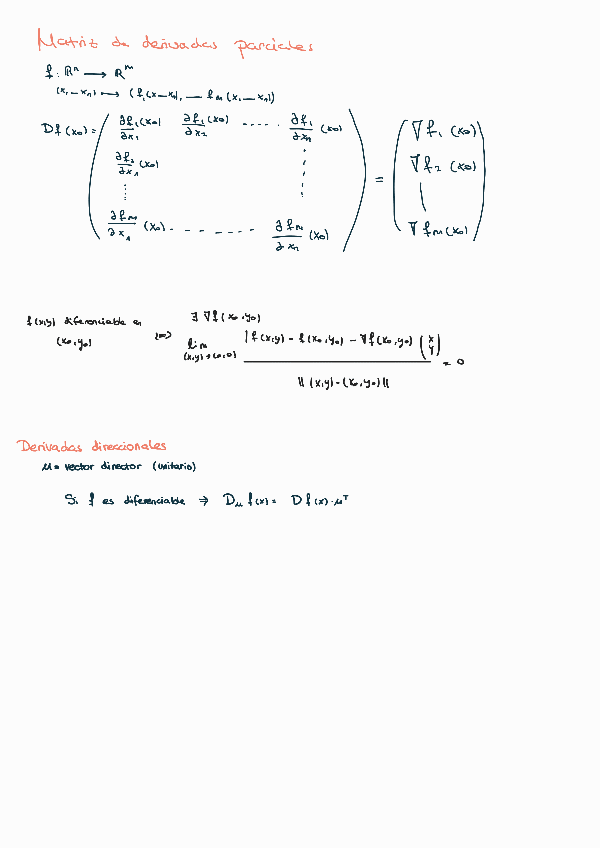 Matriz de derivadas parciales
f: ℝⁿ ⟶ ℝᵐ
(x₁ — xₙ) ⟼ (f₁(x — xₙ), — fₘ(x₁ — xₙ))
Df(x₀) = ( ∂f₁/∂x₁ (x₀) ∂f₁/∂x₂ (x₀) ..... ∂f₁/∂xₙ (x₀)
∂f₂/∂x₁ (x₀) ⋮
⋮ ⋮
∂fₘ/∂x₁ (x₀) . - - - - - ∂fₘ/∂xₙ (x₀) ) = ( ∇f₁(x₀)
∇f₂(x₀)
|
∇fₘ(x₀) )
f(x,y) diferenciable en (x₀,y₀) ⟺ ∃ ∇f(x₀,y₀)
lim (x,y)→(0,0) |f(x,y) - f(x₀,y₀) - ∇f(x₀,y₀) (x y)| / ‖(x,y) - (x₀,y₀)‖ = 0
Derivadas direccionales
μ = vector director (unitario)
Si f es diferenciable ⇒ D_μ f(x) = Df(x)·μᵀ